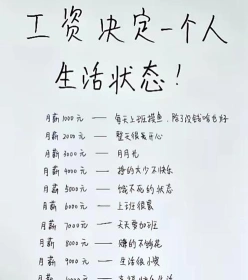 工资决定一个人
生活状态！
月薪1000元 —— 每天上班摸鱼，除了没钱啥也好
月薪2000元 —— 整天很是开心
月薪3000元 —— 月月光
月薪4000元 —— 挣的太少不快乐
月薪5000元 —— 饿不死的状态
月薪6000元 —— 上班很累
月薪7000元 —— 天天要加班
月薪8000元 —— 赚的不够花
月薪9000元 —— 生活很小资